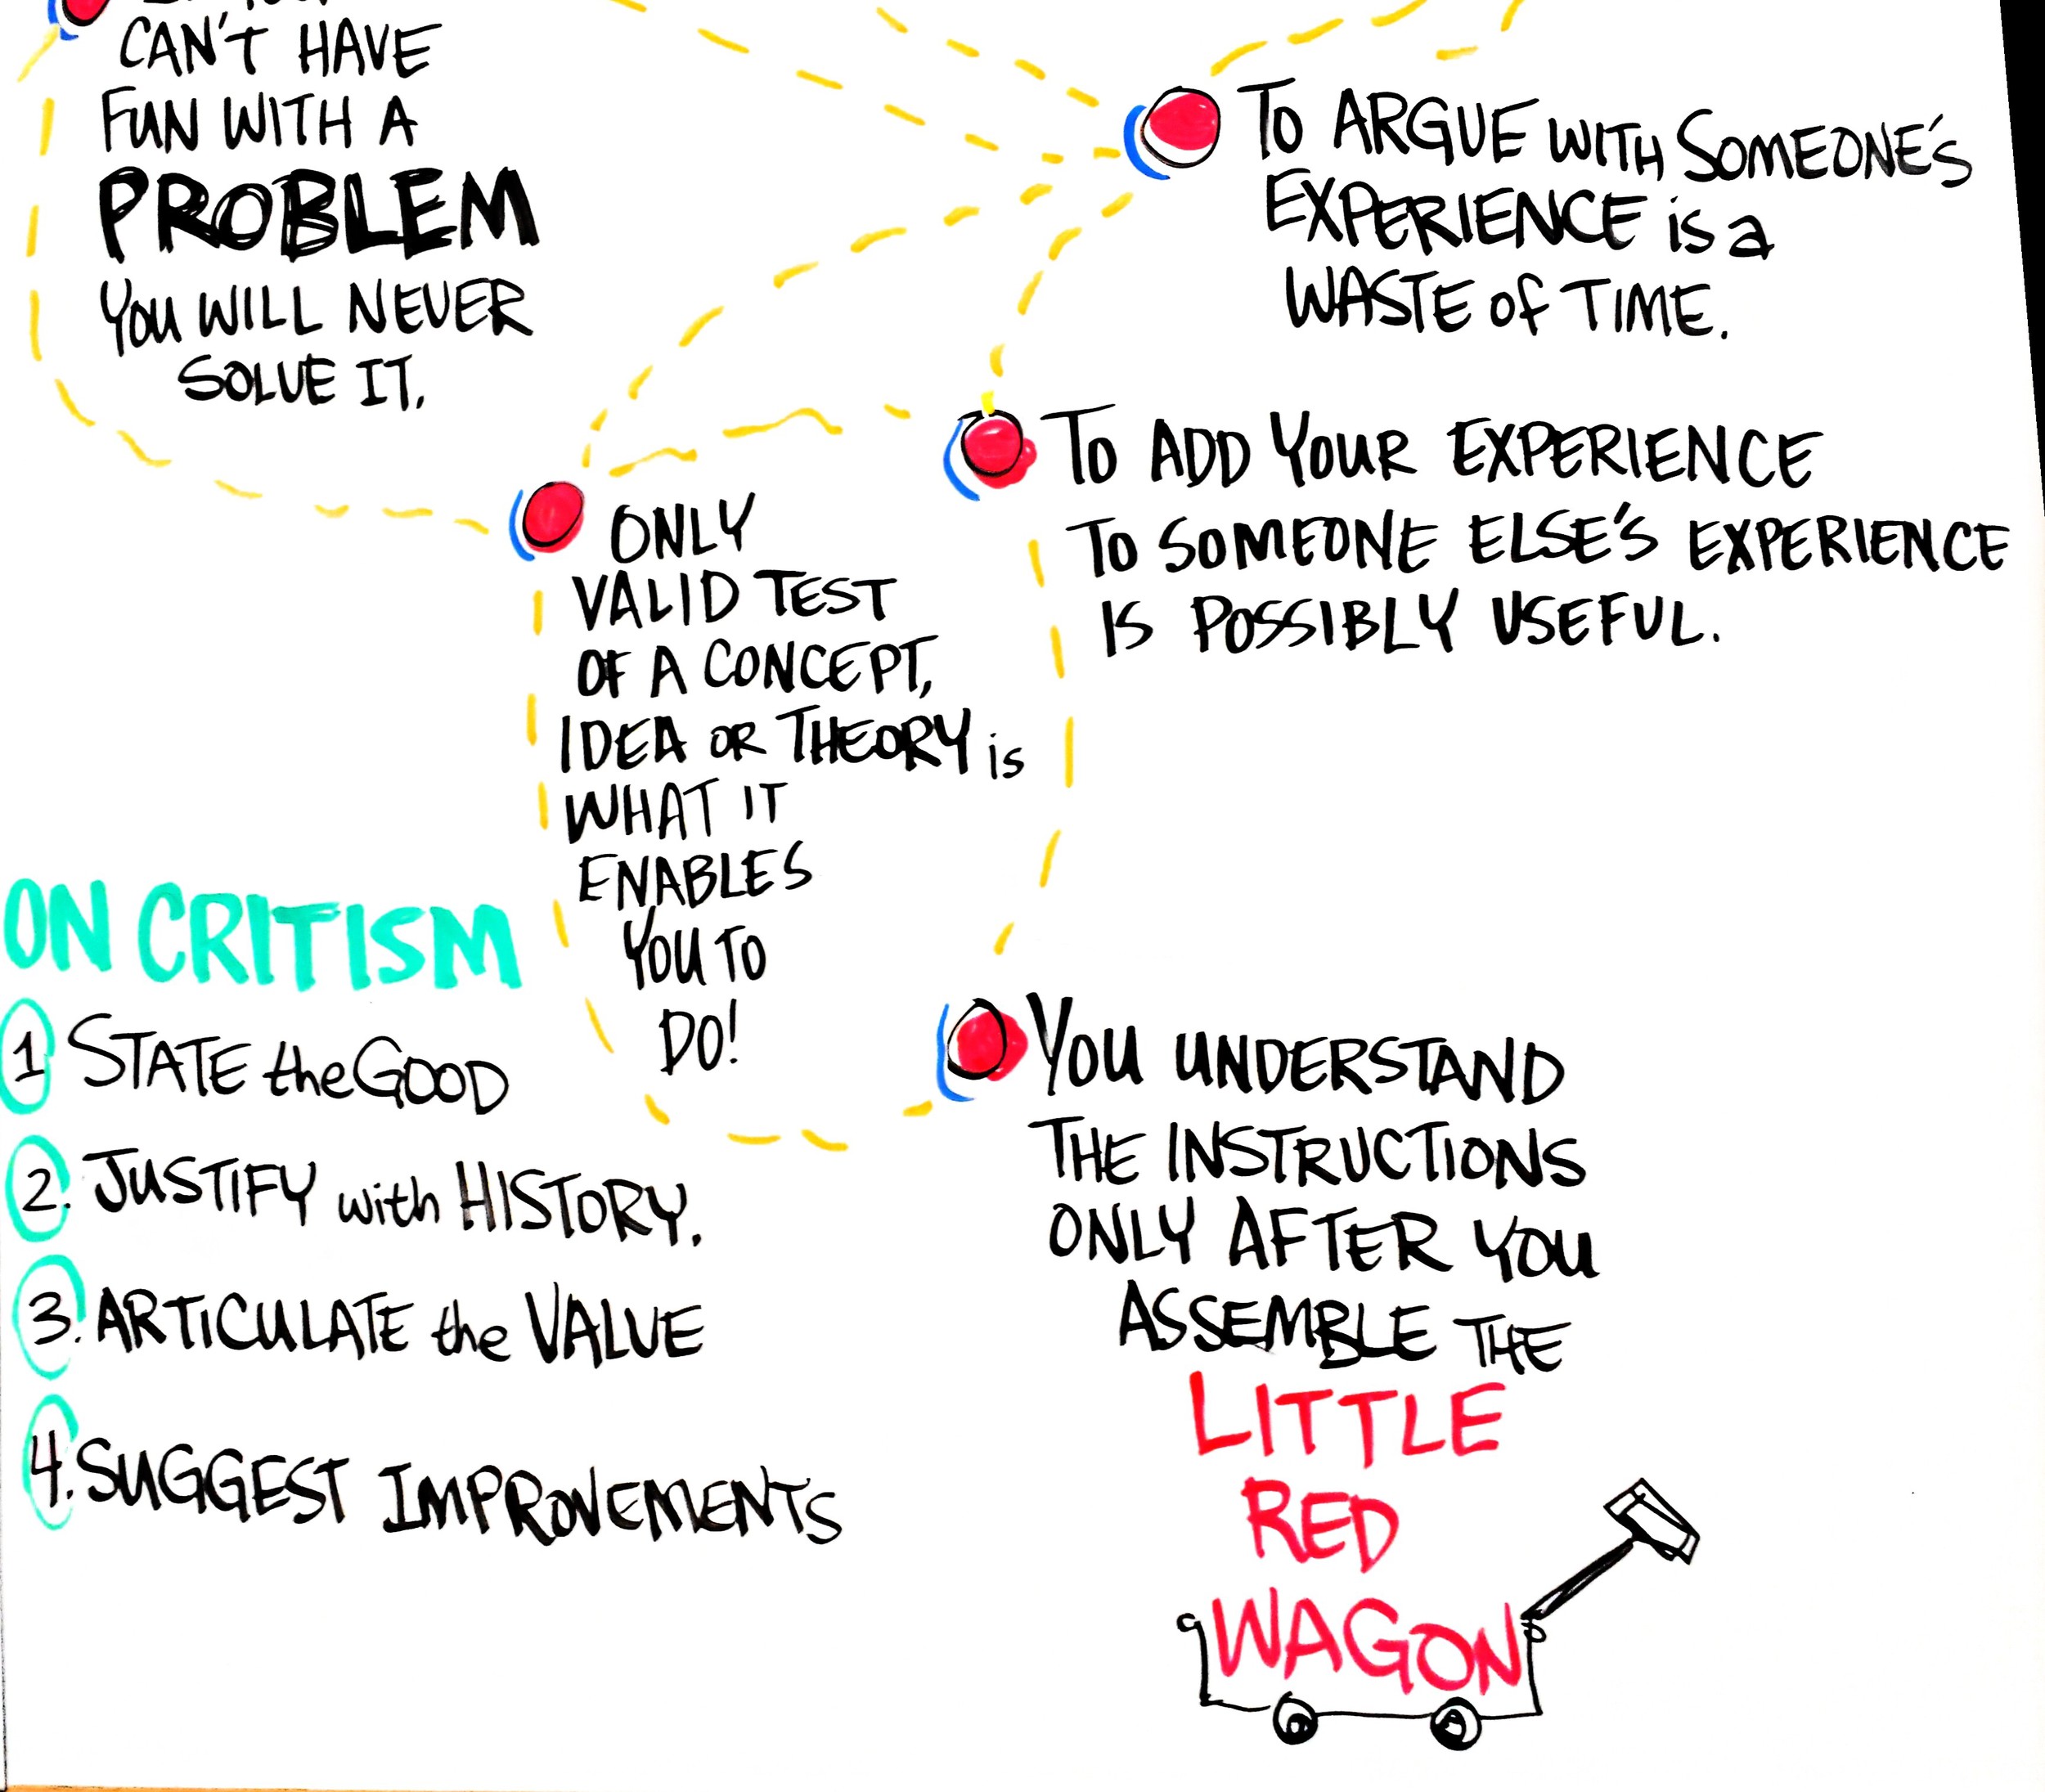 CAN'T HAVE
FUN WITH A
PROBLEM
YOU WILL NEVER
SOLVE IT.
TO ARGUE WITH SOMEONE'S
EXPERIENCE is a
WASTE of TIME.
TO ADD YOUR EXPERIENCE
TO SOMEONE ELSE'S EXPERIENCE
IS POSSIBLY USEFUL.
ONLY
VALID TEST
OF A CONCEPT,
IDEA OR THEORY is
WHAT IT
ENABLES
YOU TO
DO!
ON CRITISM
1 STATE the GOOD
2. JUSTIFY with HISTORY.
3. ARTICULATE the VALUE
4. SUGGEST IMPROVEMENTS
YOU UNDERSTAND
THE INSTRUCTIONS
ONLY AFTER YOU
ASSEMBLE THE
LITTLE
RED
WAGON